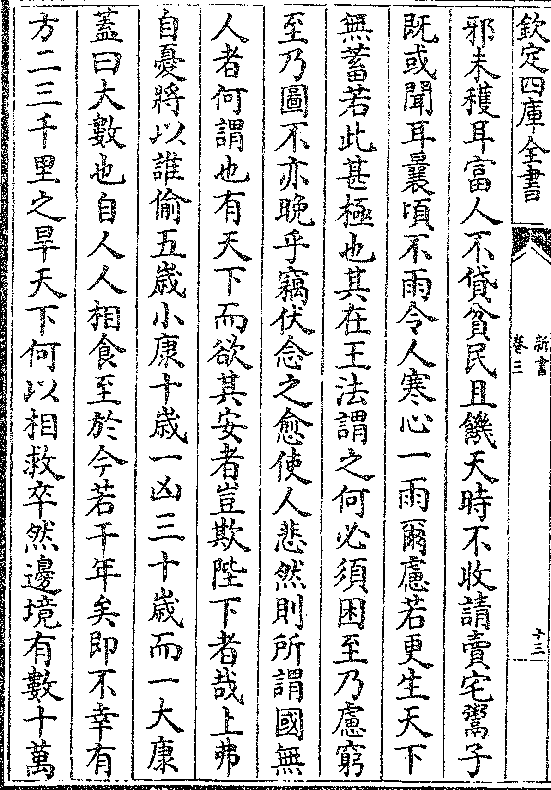 欽定四庫全書
新書
卷三
十三
邪未穫耳富人不貸貧民且饑天時不收請賣宅鬻子
既或聞耳曩頃不雨令人寒心一雨爾慮若更生天下
無蓄若此甚極也其在王法謂之何必須困至乃慮窮
至乃圖不亦晚乎竊伏念之愈使人悲然則所謂國無
人者何謂也有天下而欲其安者豈欺陛下者哉上弗
自憂將以誰偷五歲小康十歲一凶三十歲而一大康
蓋曰大數也自人人相食至於今若干年矣即不幸有
方二三千里之旱天下何以相救卒然邊境有數十萬